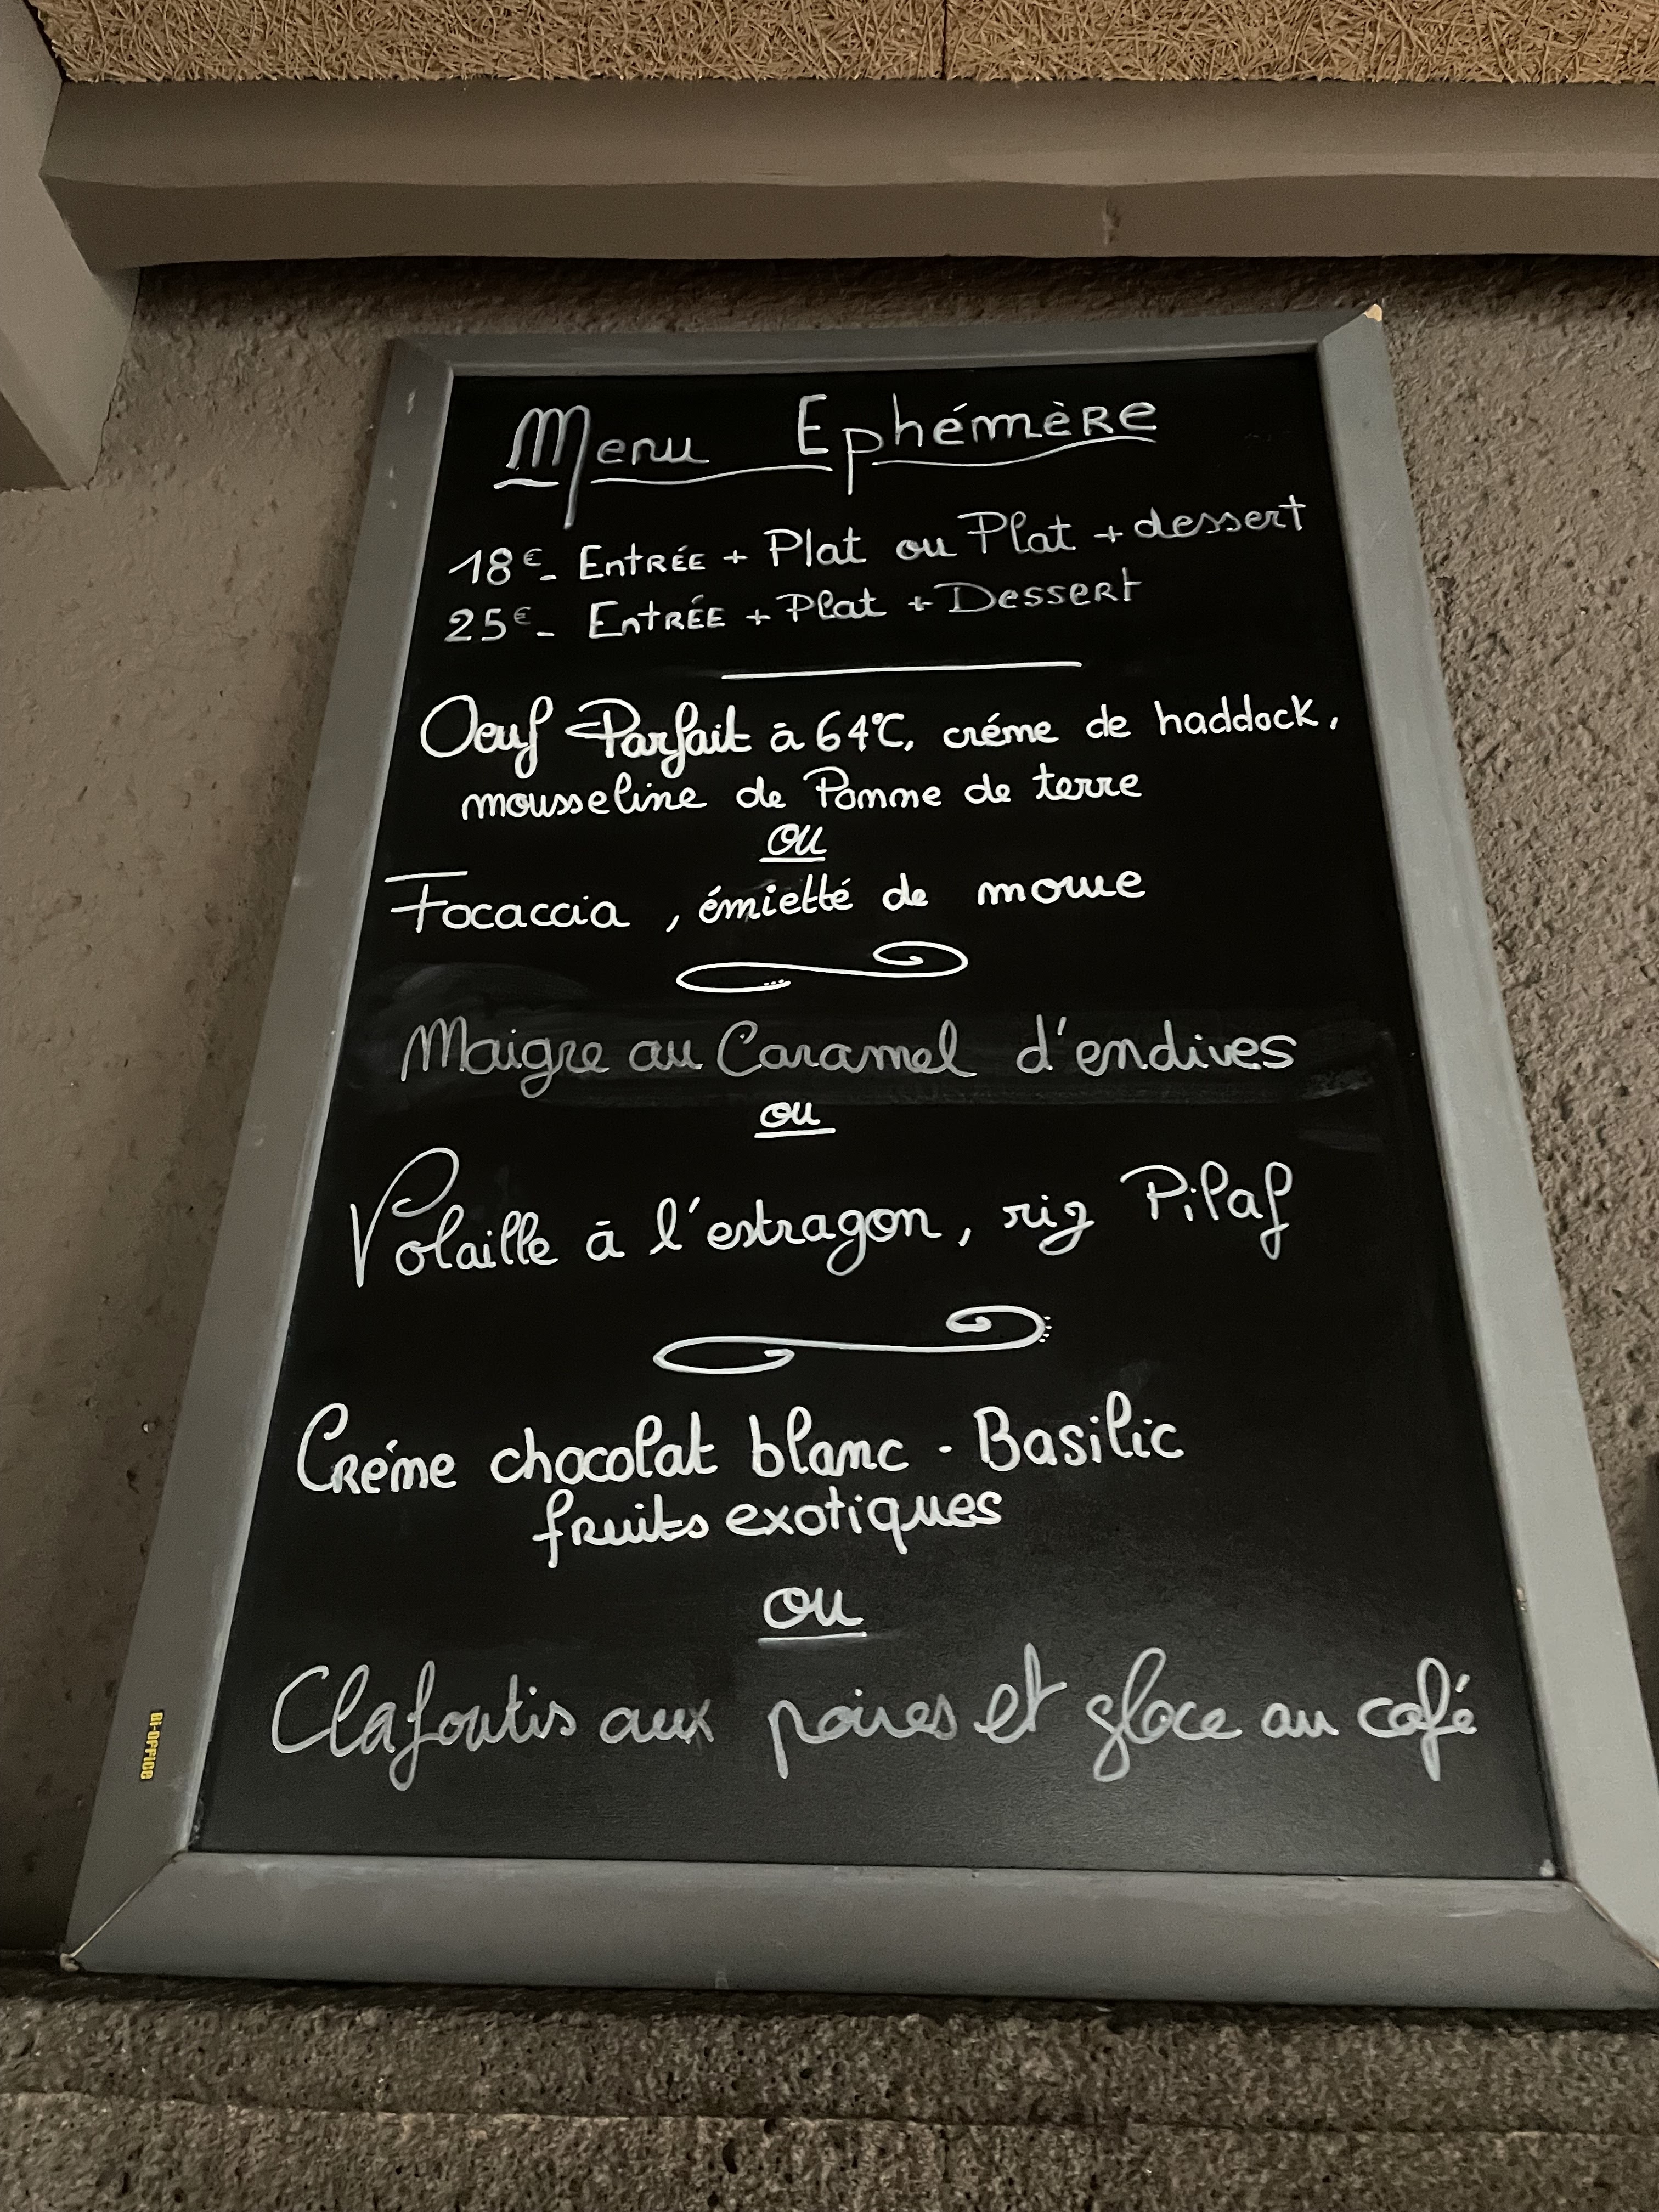 Menu Ephémère
18€- Entrée + Plat ou Plat + dessert
25€- Entrée + Plat + Dessert
Oeuf Parfait à 64°C, créme de haddock,
mousseline de Pomme de terre
ou
Focaccia, émietté de morue
Maigre au Caramel d'endives
ou
Volaille à l'estragon, riz Pilaf
Créme chocolat blanc - Basilic
fruits exotiques
ou
Clafoutis aux poires et glace au café
BI-OFFICE